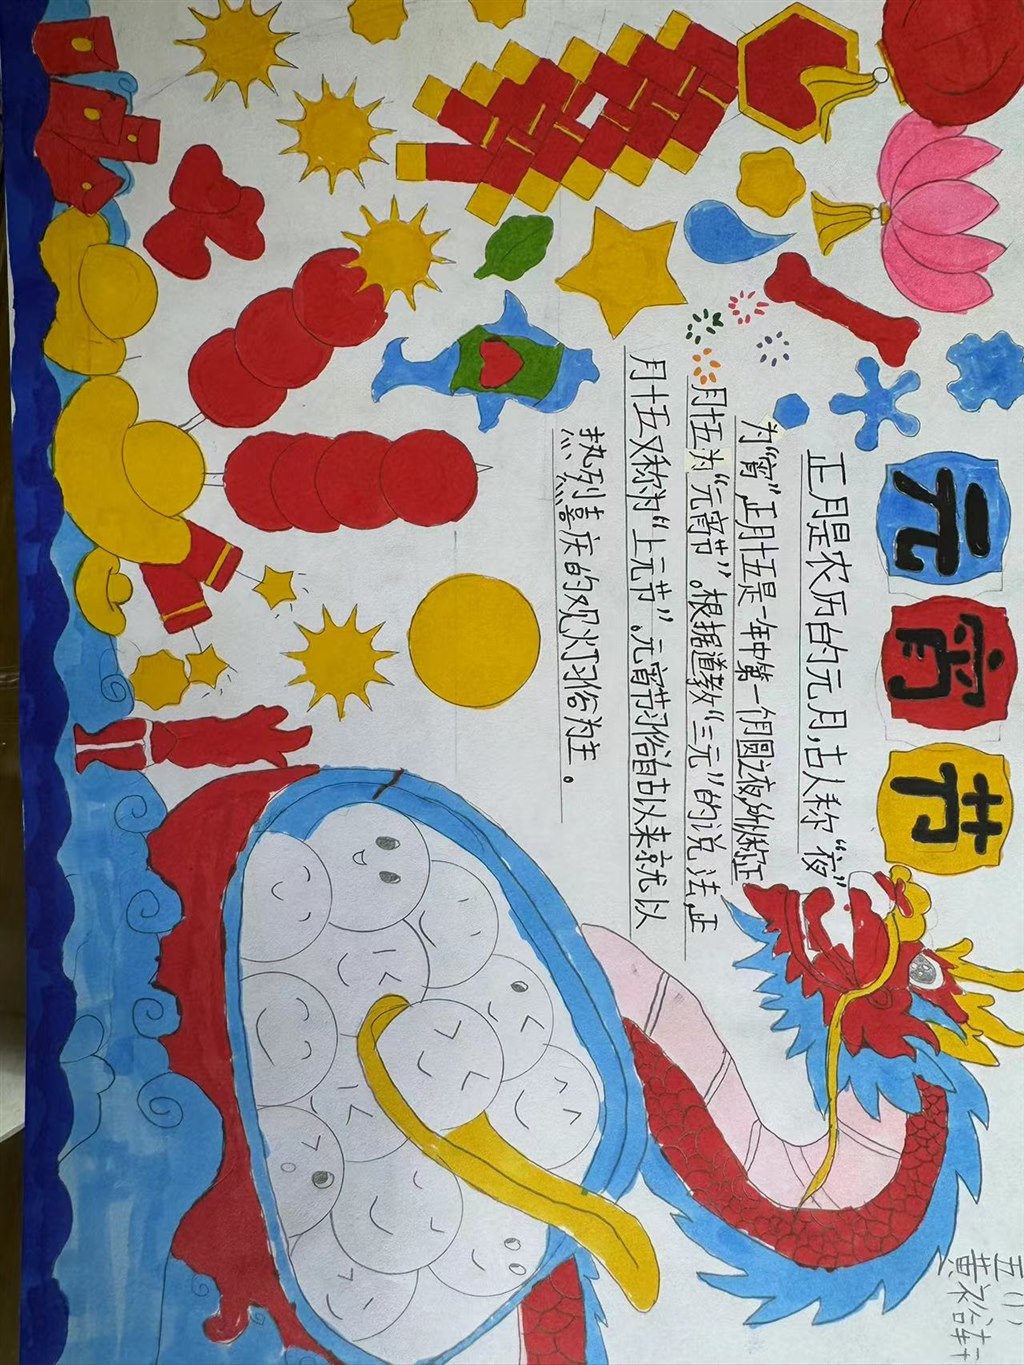 元宵节
五(1)
黄裕轩
正月是农历的元月,古人称“夜”
为“宵”,正月十五是一年中第一个月圆之夜,所以称正
月十五为“元宵节”。根据道教“三元”的说法,正
月十五又称为“上元节”。元宵节习俗自古以来就以
热烈喜庆的观灯习俗为主。